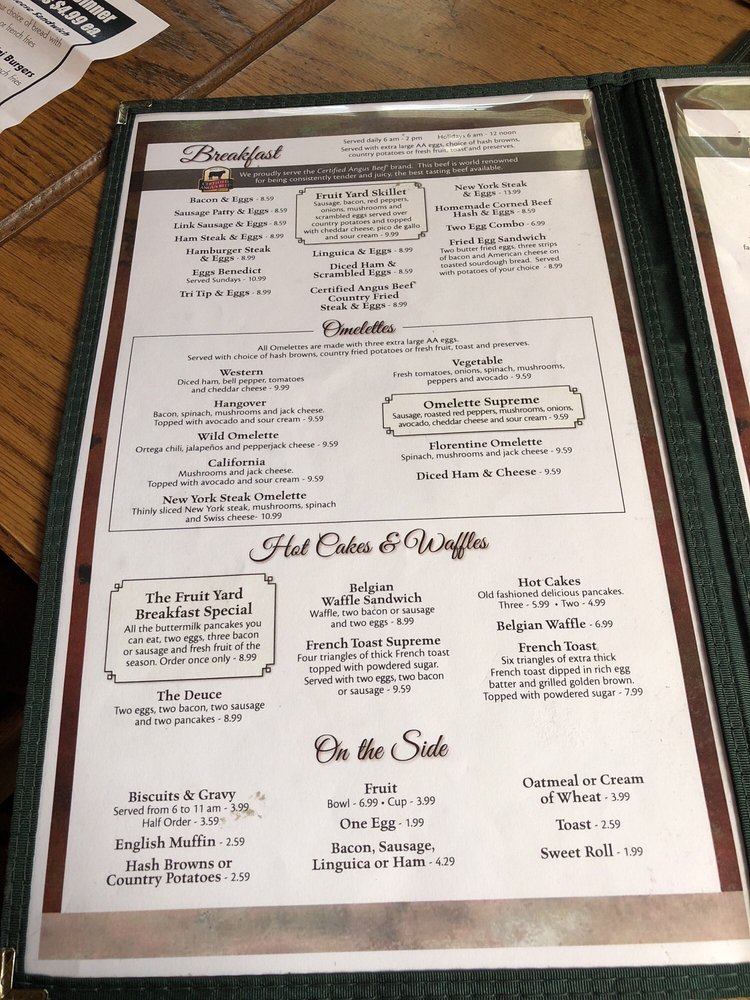 inner
$4.99 ea.
Sandwich
choice of bread with
or french fries
Burgers
french fries
Breakfast
Served daily 6 am - 2 pm Holidays 6 am - 12 noon
Served with extra large AA eggs, choice of hash browns,
country potatoes or fresh fruit, toast and preserves.
We proudly serve the Certified Angus Beef® brand. This beef is world renowned
for being consistently tender and juicy, the best tasting beef available.
CERTIFIED
ANGUS BEEF
Bacon & Eggs - 8.59
Sausage Patty & Eggs - 8.59
Link Sausage & Eggs - 8.59
Ham Steak & Eggs - 8.99
Hamburger Steak
& Eggs - 8.99
Eggs Benedict
Served Sundays - 10.99
Tri Tip & Eggs - 8.99
Fruit Yard Skillet
Sausage, bacon, red peppers,
onions, mushrooms and
scrambled eggs served over
country potatoes and topped
with cheddar cheese, pico de gallo
and sour cream - 9.99
Linguica & Eggs - 8.99
Diced Ham &
Scrambled Eggs - 8.59
Certified Angus Beef®
Country Fried
Steak & Eggs - 8.99
New York Steak
& Eggs - 13.99
Homemade Corned Beef
Hash & Eggs - 8.59
Two Egg Combo - 6.99
Fried Egg Sandwich
Two butter fried eggs, three strips
of bacon and American cheese on
toasted sourdough bread. Served
with potatoes of your choice - 8.99
Omelettes
All Omelettes are made with three extra large AA eggs.
Served with choice of hash browns, country fried potatoes or fresh fruit, toast and preserves.
Western
Diced ham, bell pepper, tomatoes
and cheddar cheese - 9.99
Hangover
Bacon, spinach, mushrooms and jack cheese.
Topped with avocado and sour cream - 9.59
Wild Omelette
Ortega chili, jalapeños and pepperjack cheese - 9.59
California
Mushrooms and jack cheese.
Topped with avocado and sour cream - 9.59
New York Steak Omelette
Thinly sliced New York steak, mushrooms, spinach
and Swiss cheese- 10.99
Vegetable
Fresh tomatoes, onions, spinach, mushrooms,
peppers and avocado - 9.59
Omelette Supreme
Sausage, roasted red peppers, mushrooms, onions,
avocado, cheddar cheese and sour cream - 9.59
Florentine Omelette
Spinach, mushrooms and jack cheese - 9.59
Diced Ham & Cheese - 9.59
Hot Cakes & Waffles
The Fruit Yard
Breakfast Special
All the buttermilk pancakes you
can eat, two eggs, three bacon
or sausage and fresh fruit of the
season. Order once only - 8.99
The Deuce
Two eggs, two bacon, two sausage
and two pancakes - 8.99
Belgian
Waffle Sandwich
Waffle, two bacon or sausage
and two eggs - 8.99
French Toast Supreme
Four triangles of thick French toast
topped with powdered sugar.
Served with two eggs, two bacon
or sausage - 9.59
Hot Cakes
Old fashioned delicious pancakes.
Three - 5.99 • Two - 4.99
Belgian Waffle - 6.99
French Toast
Six triangles of extra thick
French toast dipped in rich egg
batter and grilled golden brown.
Topped with powdered sugar - 7.99
On the Side
Biscuits & Gravy
Served from 6 to 11 am - 3.99
Half Order - 3.59
English Muffin - 2.59
Hash Browns or
Country Potatoes - 2.59
Fruit
Bowl - 6.99 • Cup - 3.99
One Egg - 1.99
Bacon, Sausage,
Linguica or Ham - 4.29
Oatmeal or Cream
of Wheat - 3.99
Toast - 2.59
Sweet Roll - 1.99